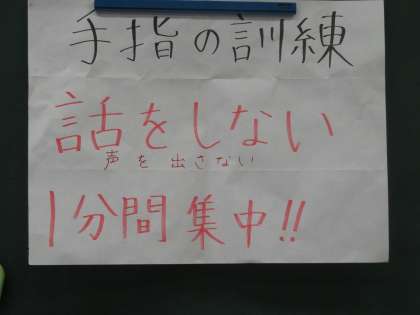 手指の訓練
話をしない
声を出さない
1分間集中!!